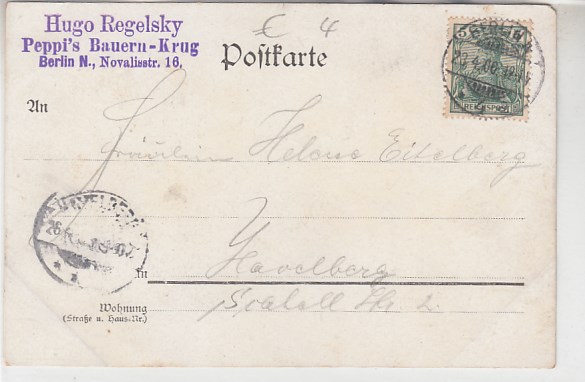 Hugo Regelsky
Peppi's Bauern-Krug
Berlin N., Novalisstr. 16.
€ 4
Postkarte
BERLIN
REICHSPOST
An
Fräulein Helene Eitelberg
HAVELBERG
26
In Havelberg
Wohnung
(Straße u. Haus-Nr.)
2